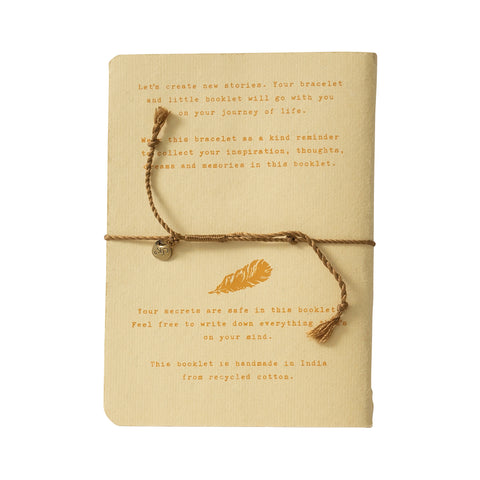 Let's create new stories. Your bracelet
and little booklet will go with you
on your journey of life.
this bracelet as a kind reminder
collect your inspiration, thoughts,
and memories in this booklet.
Your secrets are safe in this booklet
Feel free to write down everything
on your mind.
This booklet is handmade in India
from recycled cotton.